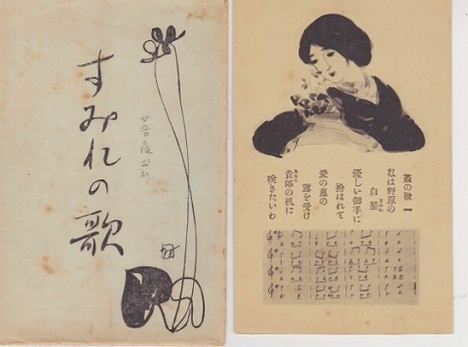 すみれの歌
菫の歌 一
私は野原の
白菫
優しい御手に
拾はれて
愛の惠の
露を受け
貴郎の机に
咲きたいわ